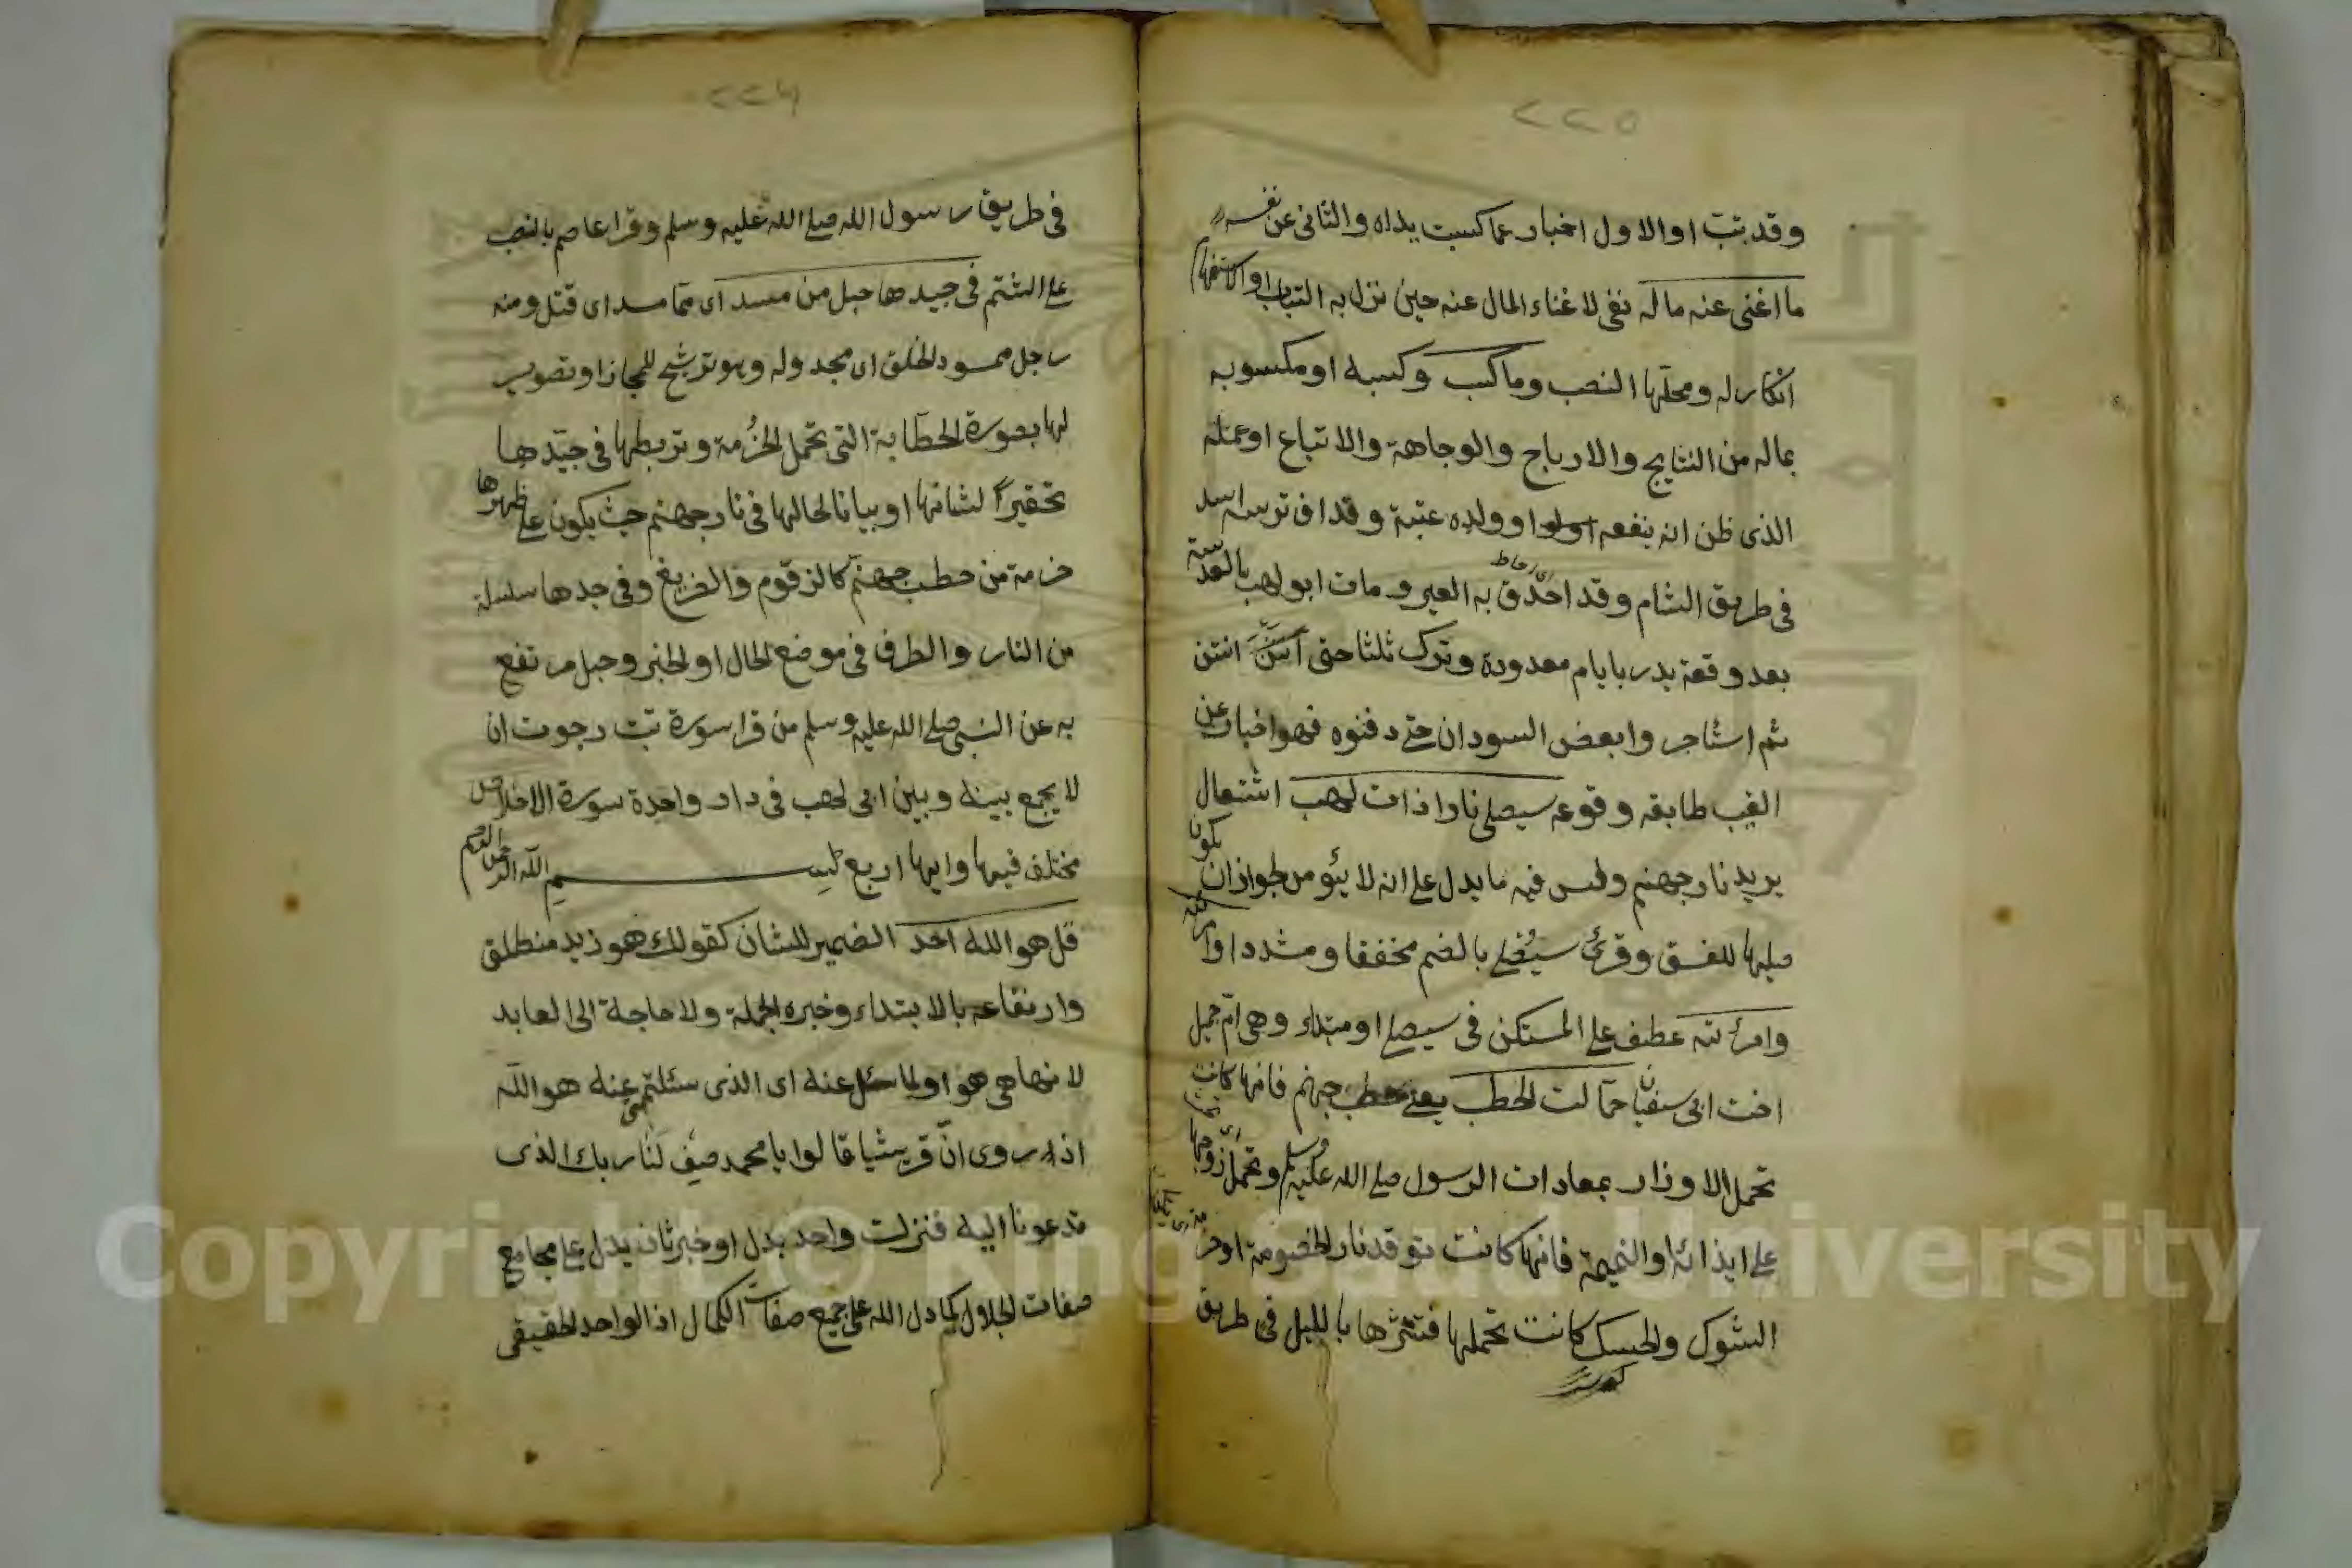 ٢٢٥
وقد تبت او الاول اخبار عما كسبت يداه والثانى عن نفسه
ما اغنى عنه ماله نفى لاغناء المال عنه حين نزل به التباب او الاستفهام
انكار له ومحلها النصب وما كسب وكسبه او مكسوبه
بماله من النتايج والارباح والوجاهة والاتباع او عمله
الذى ظن انه ينفعه او ولده عتبة وقد افترسه اسد
فى طريق الشام وقد احدق به العير ومات ابو لهب بالعدسة
اى احاط
بعد وقعة بدر بايام معدودة وترك ثلثا حتى انتن
ثم استاجروا بعض السودان حتى دفنوه فهو اخبار عن
الغيب طابقه وقوعه سيصلى نارا ذات لهب اشتعال
يريد نار جهنم وليس فيه ما يدل على انه لا يؤمن لجواز ان يكون
صليها للفسق وقرئ سيصلى بالضم مخففا ومشددا
وامرأته عطف على المستكن فى سيصلى او مبتداء وهى ام جميل
اخت ابى سفيان حمالت الحطب يعنى حطب جهنم فانها كانت
تحمل الاوزار بمعادات الرسول صلى الله عليه وسلم وتحمل زوجها
على ايذائه او النميمة فانها كانت توقد نار الخصومة او حزمة
الشوك والحسك كانت تحملها فتنثرها بالليل فى طريق
٢٢٦
فى طريق رسول الله صلى الله عليه وسلم وقرا عاصم بالنصب
على الشتم فى جيدها حبل من مسد اى مما مسد اى فتل ومنه
رجل ممسود الخلق اى مجدوله وهو ترشيح للمجاز او تصوير
لها بصورة الحطابة التى تحمل الحزمة وتربطها فى جيدها
تحقيرا لشانها او بيانا لحالها فى نار جهنم حيث يكون على ظهرها
حزمة من حطب جهنم كالزقوم والضريع وفى جدها سلسلة
من النار والظرف فى موضع الحال او الخبر وحبل مرتفع
به عن النبى صلى الله عليه وسلم من قرا سورة تبت رجوت ان
لا يجمع بينه وبين ابى لهب فى دار واحدة سورة الاخلاص
مختلف فيها وايها اربع بسم الله الرحمن الرحيم
قل هو الله احد الضمير للشان كقولك هو زيد منطلق
وارتفاعه بالابتداء وخبره الجملة ولا حاجة الى العايد
لانها هى هو او لما سئل عنه اى الذى سئلتم عنه هو الله
اذ روى ان قريشا قالوا يا محمد صف لنا ربك الذى
تدعونا اليه فنزلت واحد بدل او خبر ثان يدل على مجامع
صفات الجلال كما دل الله على جميع صفات الكمال اذ الواحد الحقيقى
Copyright © King Saud University